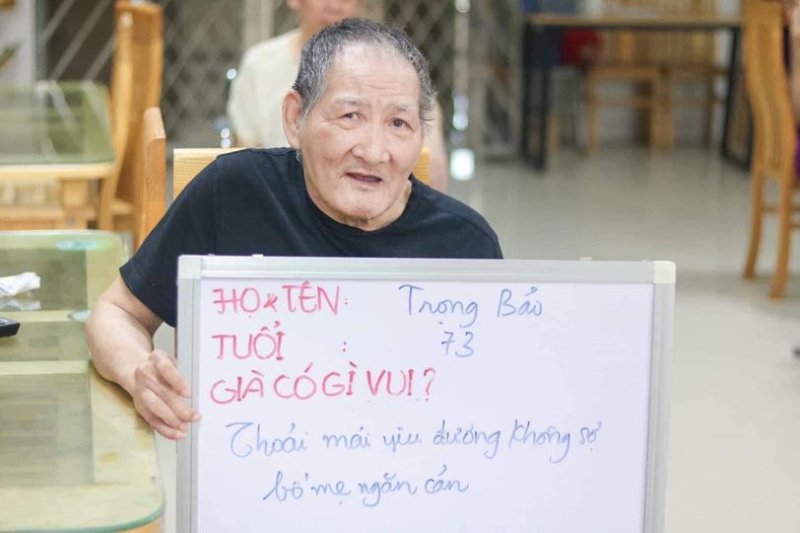 HỌ & TÊN: Trọng Bảo
TUỔI : 73
GIÀ CÓ GÌ VUI?
Thoải mái yêu đương không sợ
bố mẹ ngăn cản